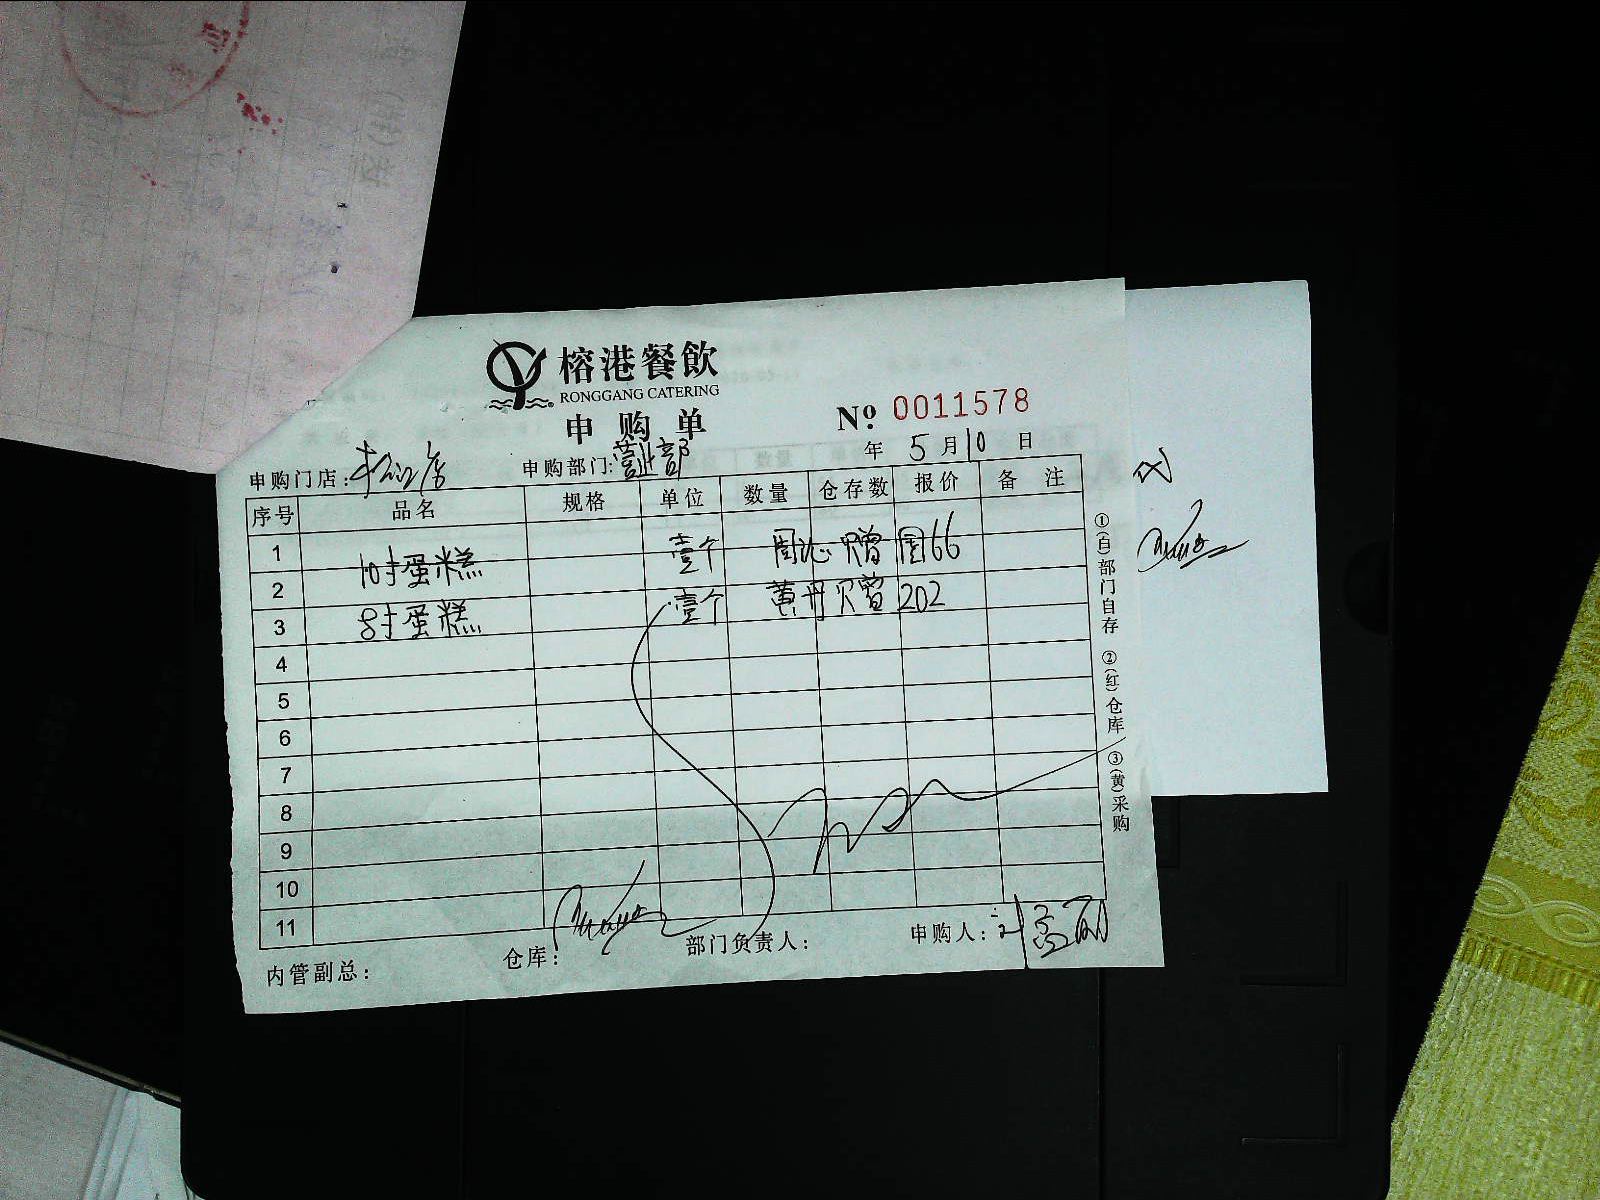 榕港餐飲
RONGGANG CATERING
申购单
№ 0011578
年 5 月 10 日
申购门店: 店 申购部门: 营业部
序号 品名 规格 单位 数量 仓存数 报价 备注
1 10寸蛋糕 壹个 赠 围66
2 8寸蛋糕 壹个 黄丹 赠 202
3
4
5
6
7
8
9
10
11
内管副总: 仓库: 部门负责人: 申购人: 刘
①(白)部门自存 ②(红)仓库 ③(黄)采购